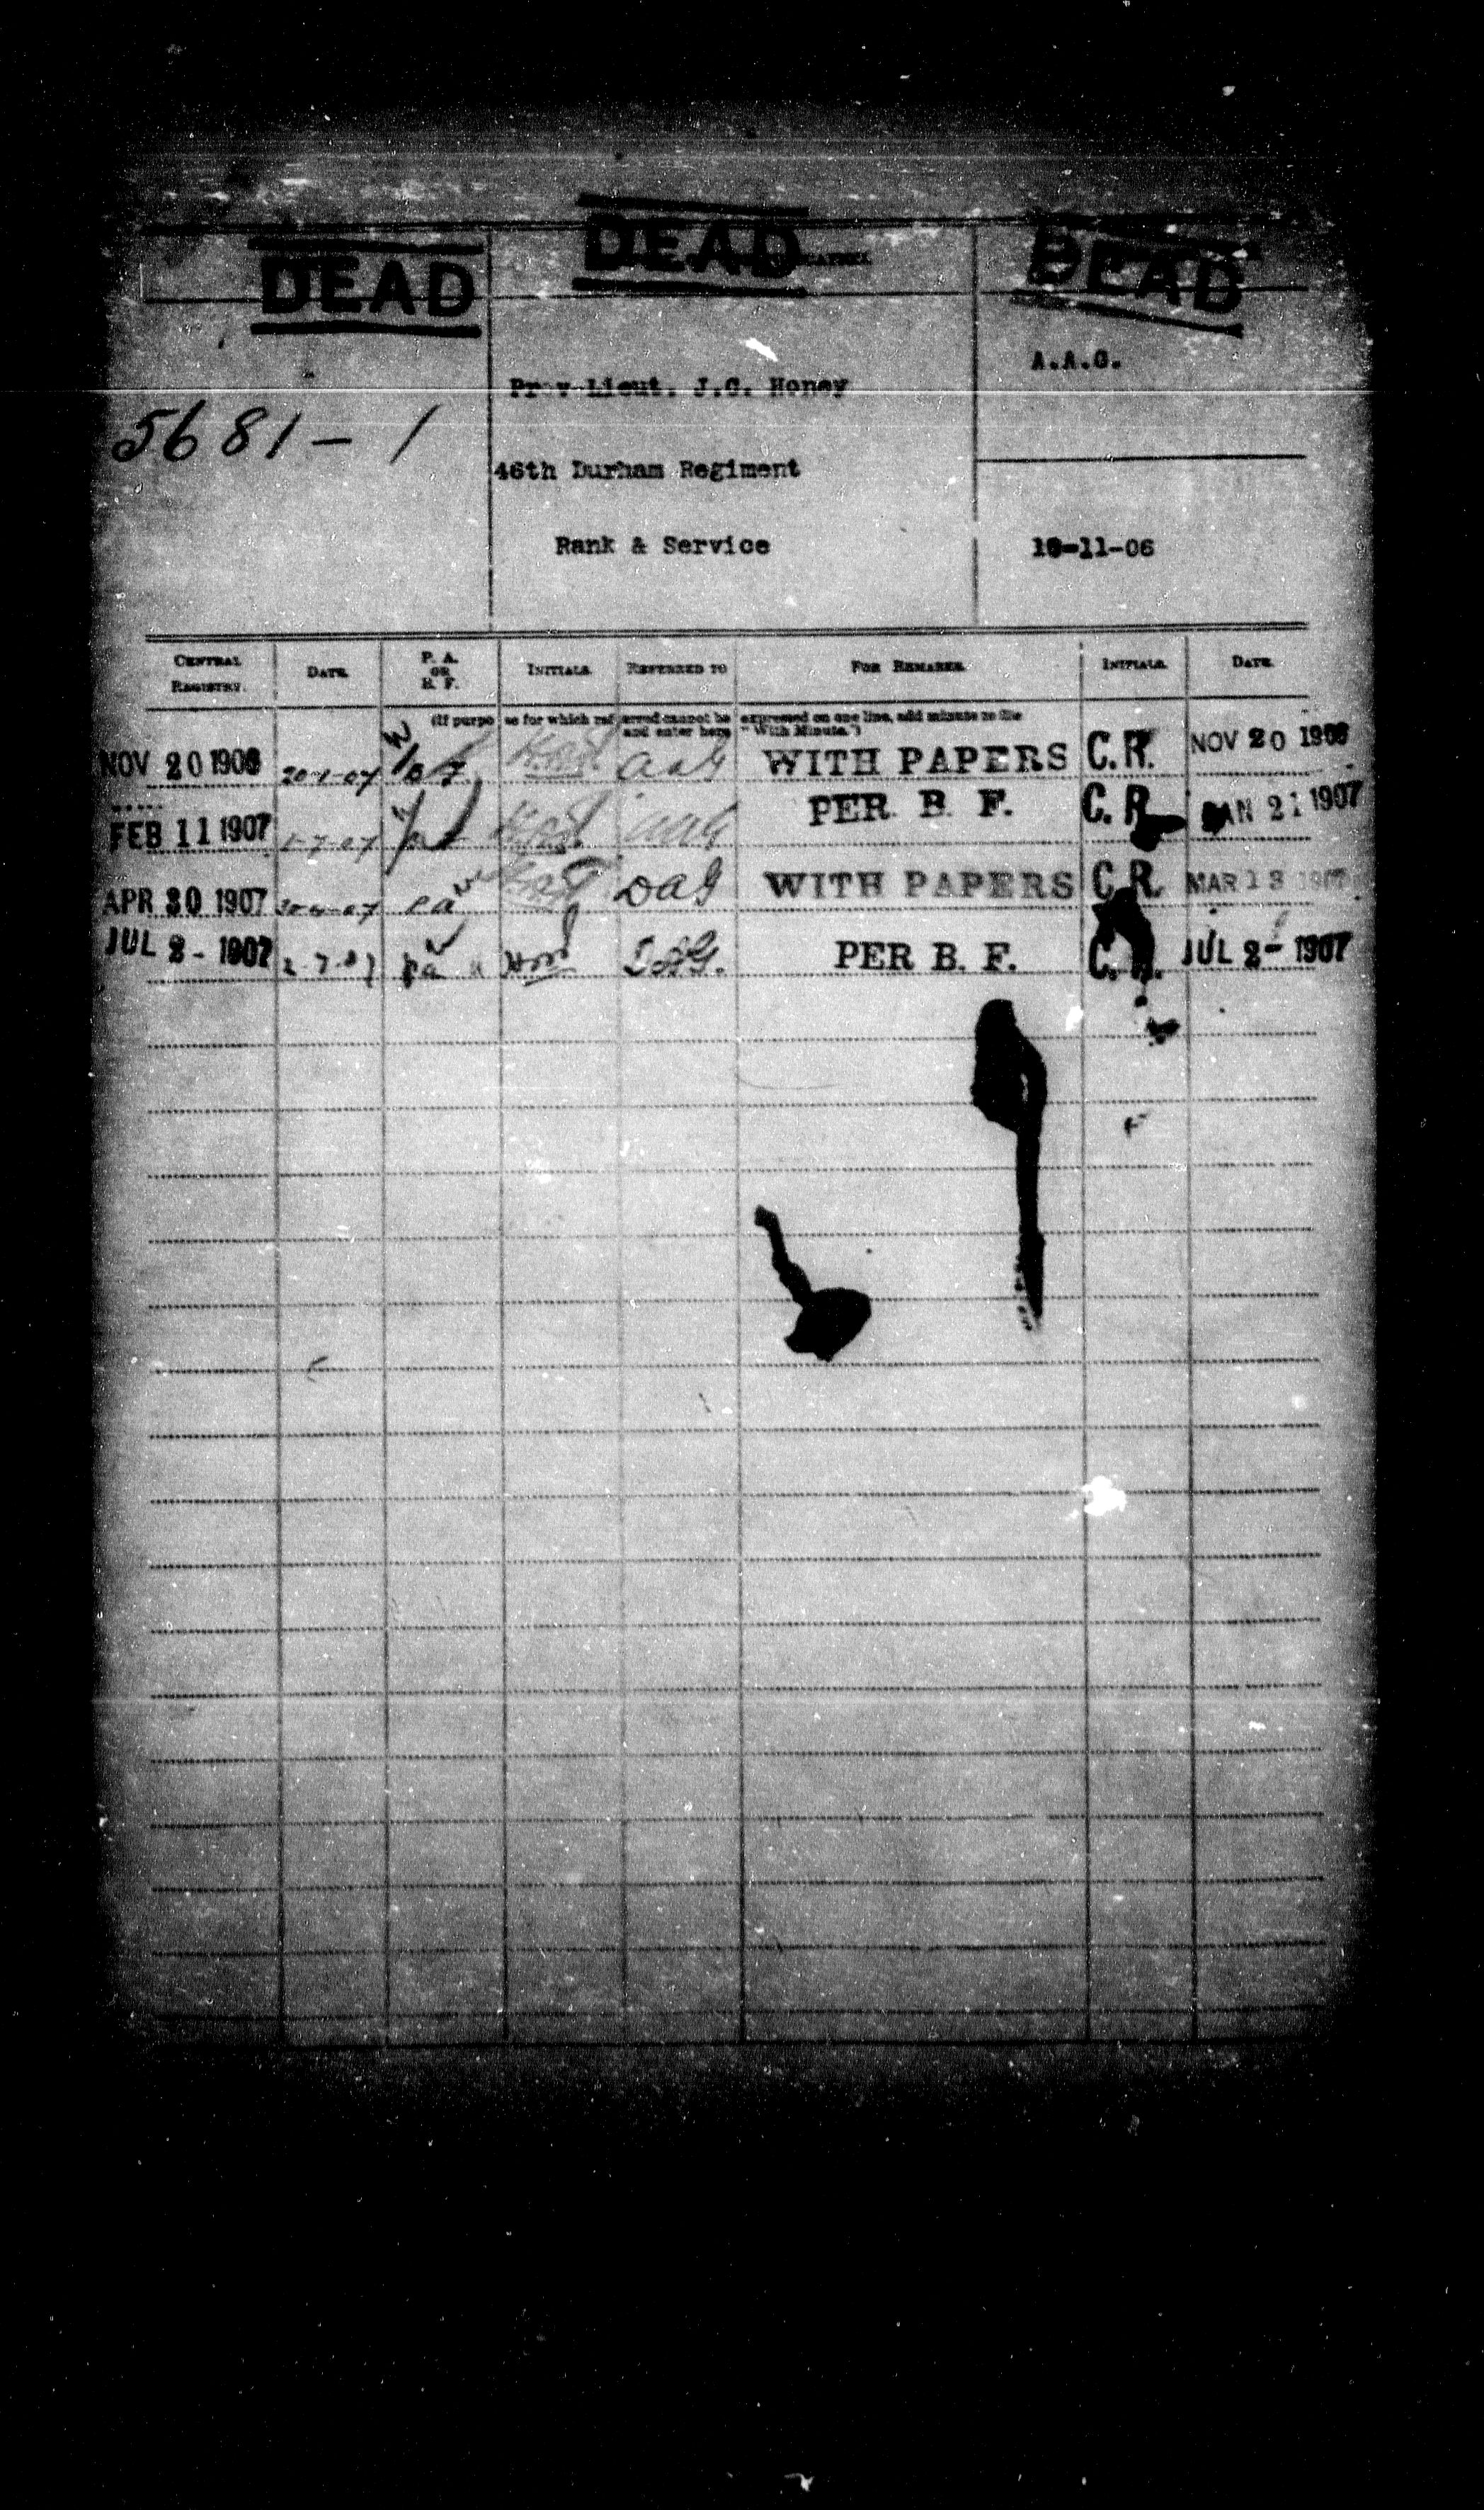 DEAD DEAD DEAD
A.A.G.
Prov-Lieut. J.C. Honey
5681-1
46th Durham Regiment
Rank & Service 10-11-06
CENTRAL REGISTRY. DATE. P. A. OR B. F. INITIALS. REFERRED TO FOR REMARKS. INITIALS. DATE.
(If purpose for which referred cannot be expressed on one line, add minute to file
and enter here "With Minute.")
NOV 20 1906 20-1-07 B F AAG WITH PAPERS C.R. NOV 20 1906
FEB 11 1907 AAG PER B. F. C.R. JAN 21 1907
APR 30 1907 30-4-07 PA DAG WITH PAPERS C.R. MAR 13 1907
JUL 2- 1907 2-7-07 PA DAG. PER B. F. C.R. JUL 2- 1907